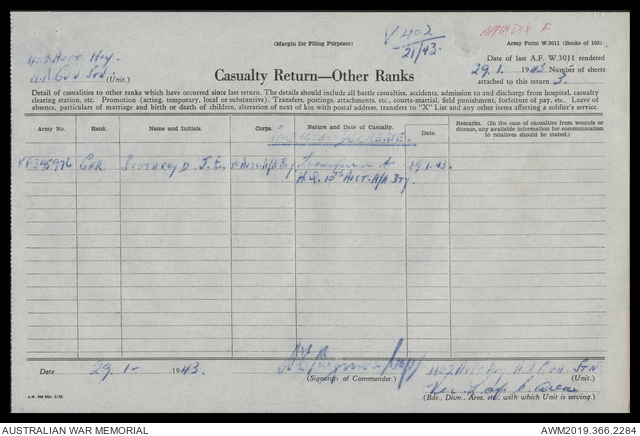 (Margin for Filing Purposes)
V 402
21/43.
APPENDIX F
Army Form W.3011 (Books of 100)
402 Aust Hvy
A.A Gun Stn. (Unit.)
Date of last A.F. W.3011 rendered
29.1. 1943. Number of sheets
attached to this return 3.
Casualty Return—Other Ranks
Detail of casualties to other ranks which have occurred since last return. The details should include all battle casualties, accidents, admission to and discharge from hospital, casualty
clearing station, etc. Promotion (acting, temporary, local or substantive). Transfers, postings, attachments, etc., courts-martial, field punishment, forfeiture of pay, etc. Leave of
absence, particulars of marriage and birth or death of children, alteration of next of kin with postal address, transfers to "X" List and any other items affecting a soldier's service.
Army No. Rank. Name and Initials. Corps. Nature and Date of Casualty. Date. Remarks. (In the case of casualties from wounds or disease, any available information for communication to relatives should be stated.)
Gnr. J. E. Aust. A/A Bty Transferred to 29.1.43.
H.Q. Aust. A/A Bty.
Date 29.1- 1943.
(Signature of Commander.)
402 Aust Hvy A.A Gun. Stn.
(Unit.)
(Bde., Divn., Area, etc., with which Unit is serving.)
AUSTRALIAN WAR MEMORIAL
AWM2019.366.2284